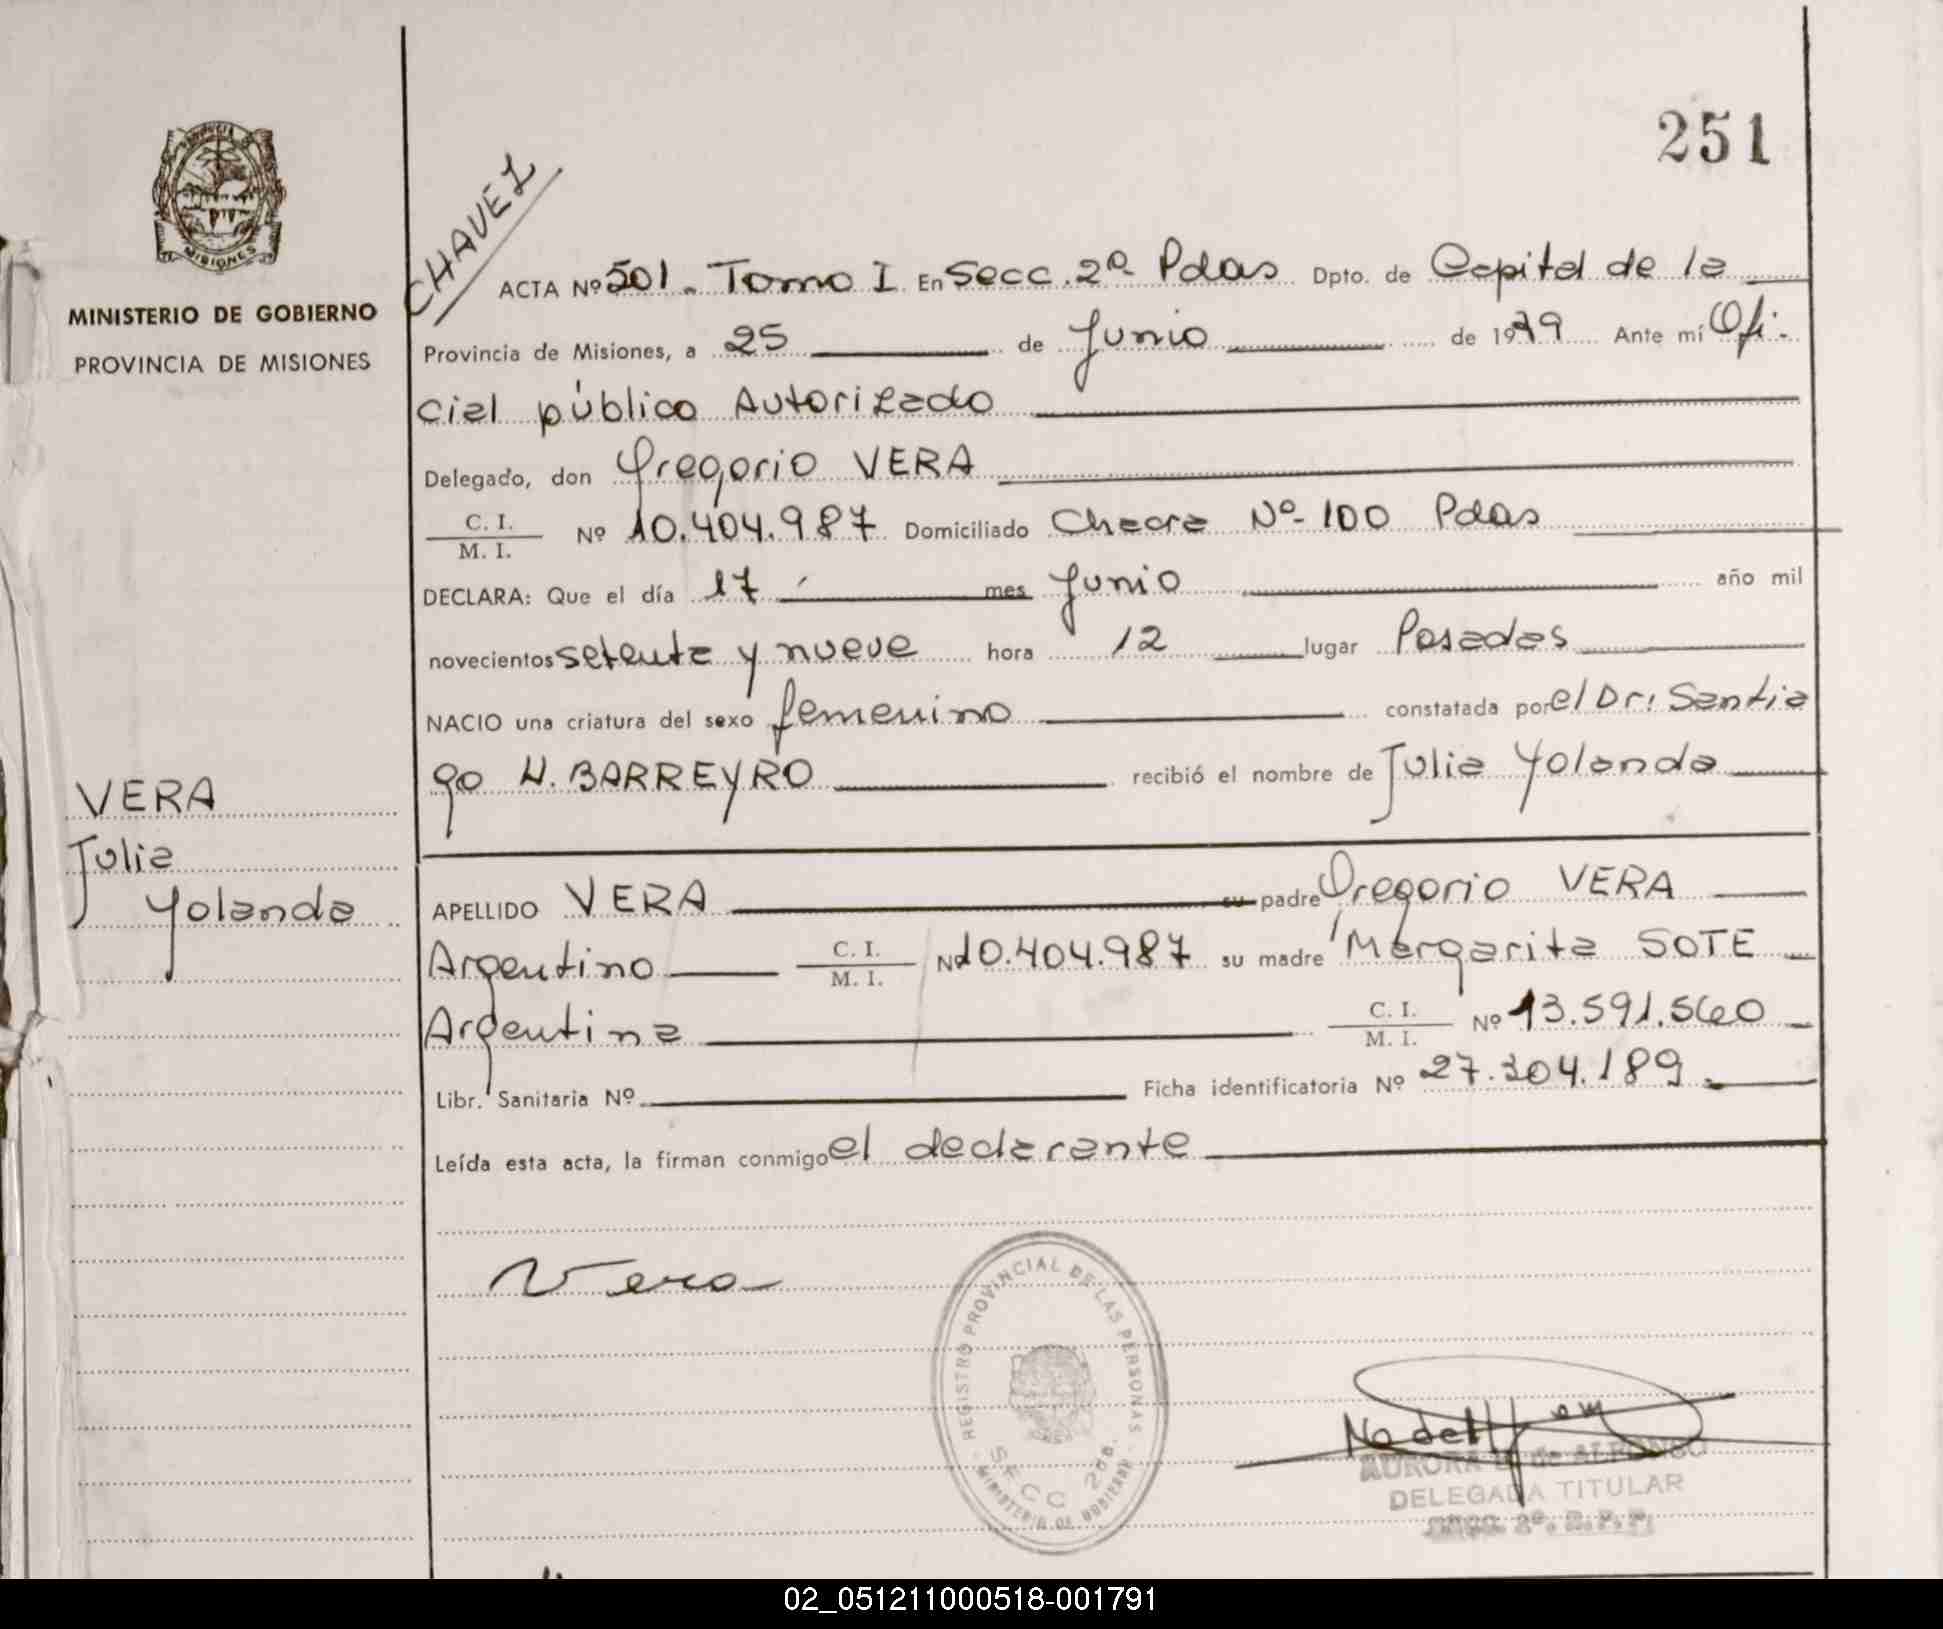 251
CHAVEZ
MINISTERIO DE GOBIERNO
PROVINCIA DE MISIONES
ACTA Nº 501. Tomo I En Secc. 2ª Pdas Dpto. de Capital de la
Provincia de Misiones, a 25 de Junio de 1979 Ante mí Ofi-
cial público Autorizado
Delegado, don Gregorio VERA
C. I.
M. I. Nº 10.404.987 Domiciliado Chacra Nº 100 Pdas
DECLARA: Que el día 17 mes Junio año mil
novecientos setenta y nueve hora 12 lugar Posadas
NACIO una criatura del sexo femenino constatada por el Dr: Santia
go H. BARREYRO recibió el nombre de Julia Yolanda
VERA
Julia
Yolanda
APELLIDO VERA su padre Gregorio VERA
Argentino C. I. M. I. Nº 10.404.987 su madre Margarita SOTE
Argentina C. I. M. I. Nº 13.591.560
Libr. Sanitaria Nº Ficha identificatoria Nº 27.304.189
Leída esta acta, la firman conmigo el declarante
Vera
REGISTRO PROVINCIAL DE LAS PERSONAS
SECC 2da.
MINISTERIO DE GOBIERNO
AURORA de ALFONSO
DELEGADA TITULAR
02_051211000518-001791